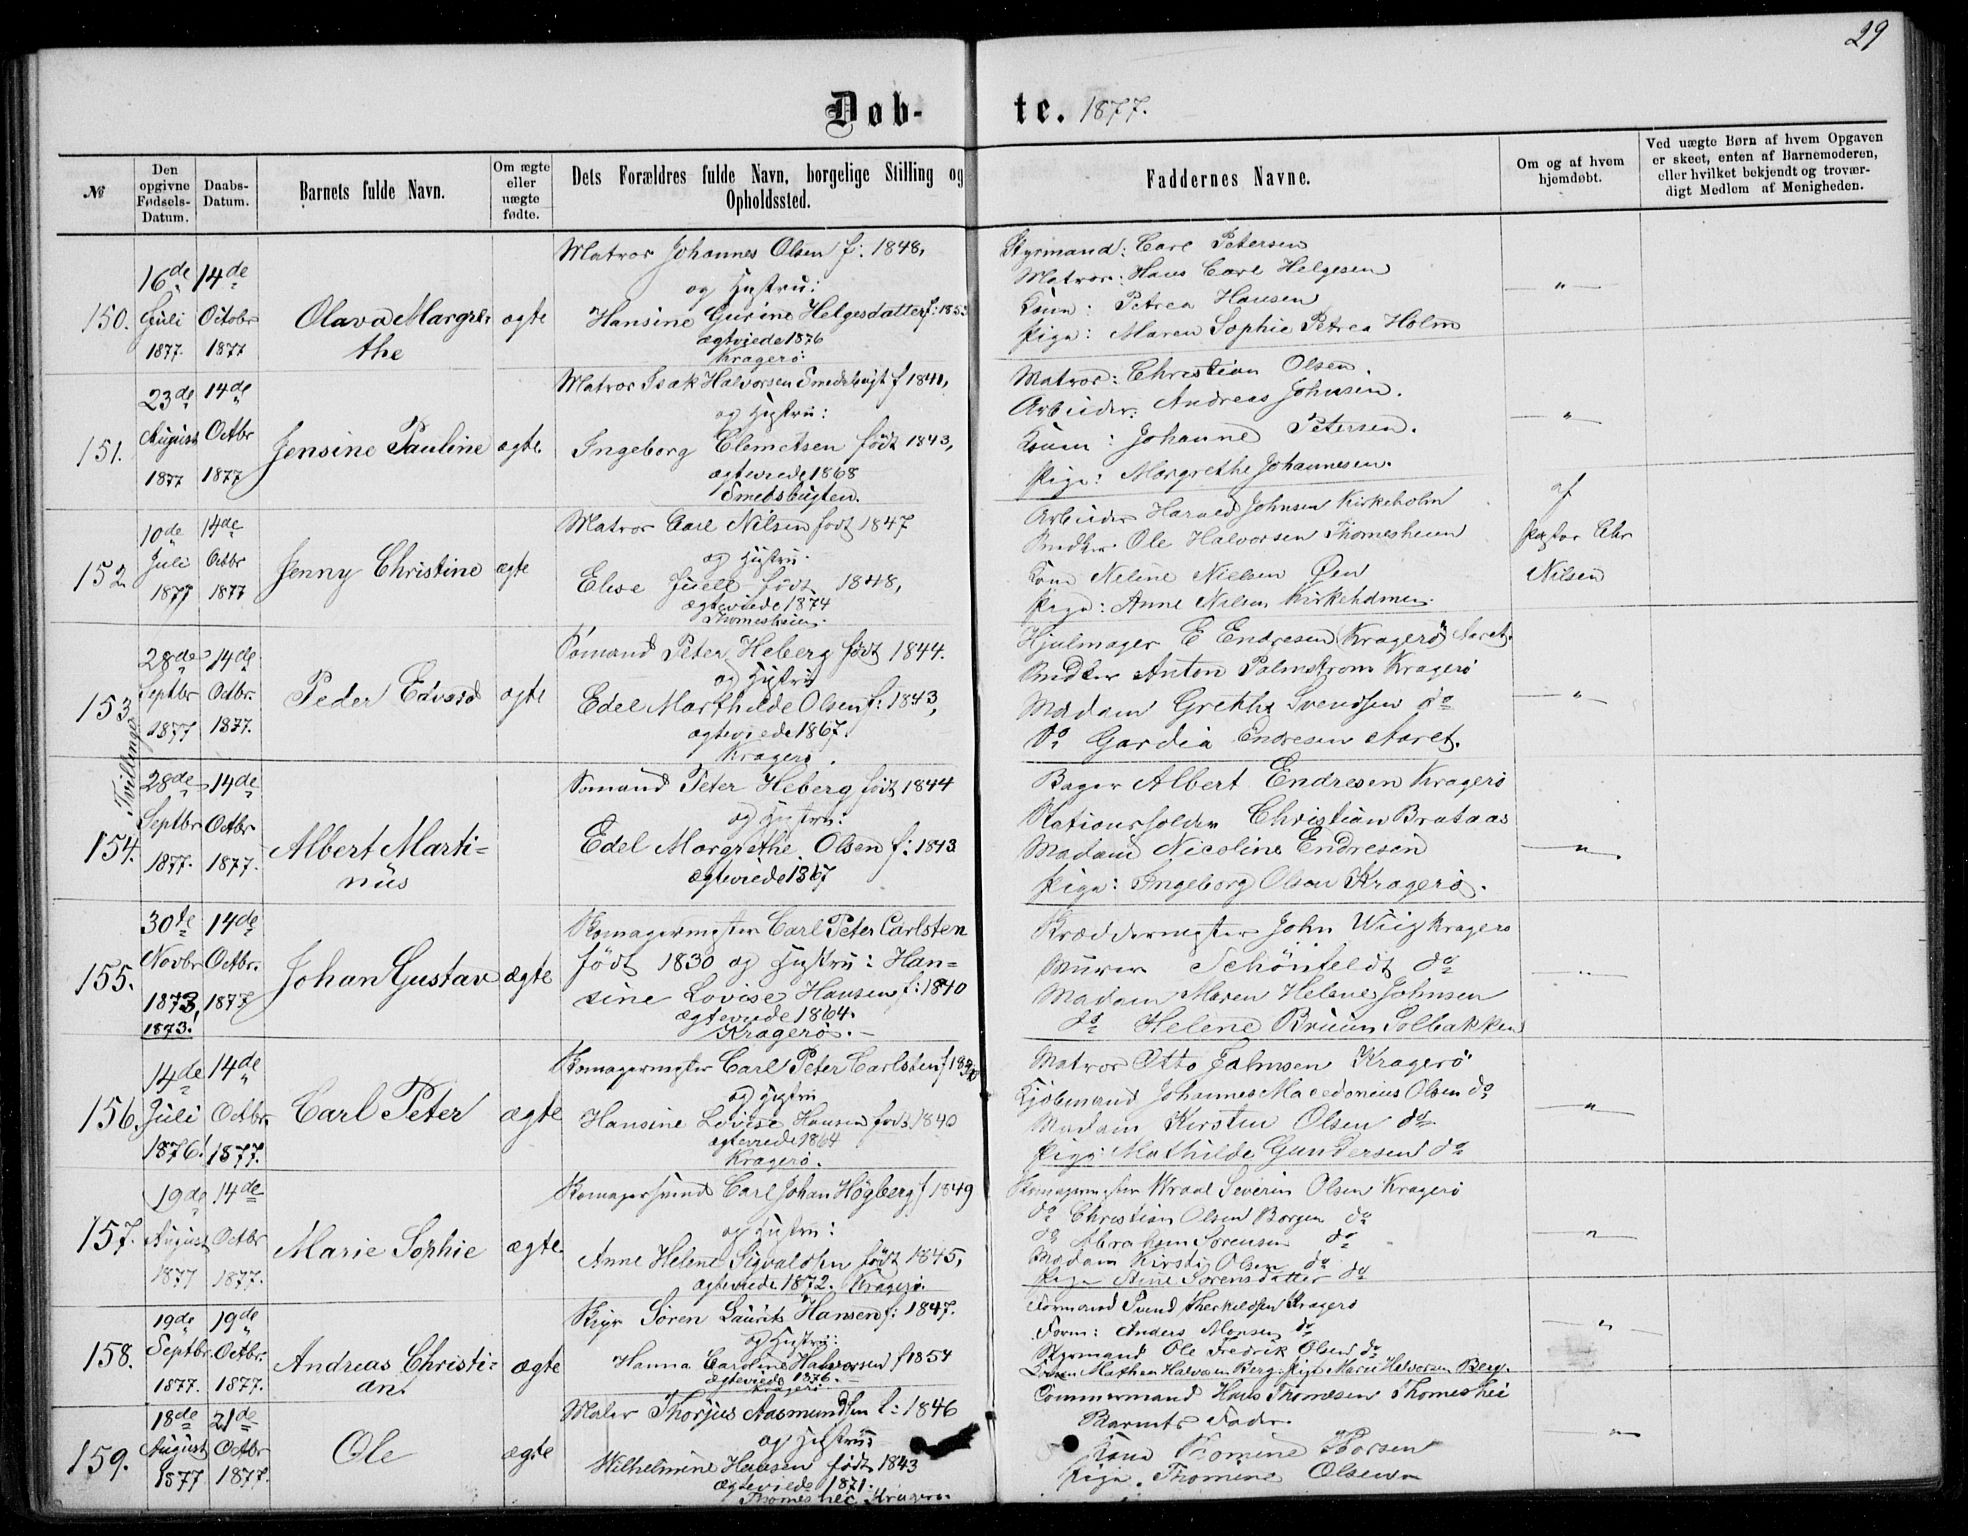 29
Døb-te. 1877.
№
Den opgivne Fødsels-Datum.
Daabs-Datum.
Barnets fulde Navn.
Om ægte eller uægte fødte.
Dets Forældres fulde Navn, borgelige Stilling og Opholdssted.
Faddernes Navne.
Om og af hvem hjemdøbt.
Ved uægte Børn af hvem Opgaven er skeet, enten af Barnemoderen, eller hvilket bekjendt og troværdigt Medlem af Menigheden.
150.
16de Juli 1877
14de Octobr 1877
Olava Margrethe
ægte
Matros Johannes Olsen f: 1848,
og Hustru:
Hansine Gurine Helgesdatter f: 1853
ægteviede 1876
Kragerö.
Styrmand: Carl Petersen
Matros: Hans Carl Helgesen
Kone: Petrea Hansen
Pige: Maren Sophie Petrea Holm
— " —
151.
23de August 1877
14de Octbr 1877
Jensine Pauline
ægte
Matros Isak Halvorsen Smedsbugt f 1841,
og Hustru:
Ingeborg Clemetsen födt 1843,
ægteviede 1868
Smedsbugten.
Matros: Christian Olsen.
Arbeider: Andreas Johnsen.
Kone: Johanne Petersen.
Pige: Margrethe Johannesen.
— " —
152
10de Juli 1877
14de Octbr 1877
Jenny Christine
ægte
Matros Carl Nilsen født 1847
og Hustru
Elise Juell födt 1848,
ægteviede 1874
Thomesheien.
Arbeider Harald Johnsen Kirkeholm
Bødker Ole Halvorsen Thomesheien
Kone Neline Nielsen Øen
Pige: Anne Nilsen Kirkeholmen.
af
Pastor Chr
Nilsen
Tvillinger
153
28de Septbr 1877
14de Octbr. 1877.
Peder Edvard
ægte
Sömand Peter Heberg födt 1844.
og Hustru
Edel Marthilde Olsen f: 1843,
ægteviede 1867.
Kragerö.
Hjulmager E Endresen Kragerö
Bødker Anton Palmstrøm Kragerö
Madam Grethe Svendsen do
do Gardia Endresen
— " —
154.
28de Septbr 1877.
14de Octbr 1877.
Albert Martinus
Sömand Peter Heberg födt 1844
og Hustru:
Edel Margrethe Olsen f: 1843
ægteviede 1867
Bager Albert Endresen Kragerö
Stationsholder Christian Brataas
Madam Nicoline Endresen
Pige: Ingeborg Olsen Kragerö.
— " —
155.
30te Novbr 1873, 1873!
14de Octbr. 1877
Johan Gustav
ægte
Skomagermester Carl Peter Carlsten
födt 1830 og Hustru: Han-
sine Lovise Hansen f: 1840
ægteviede 1864.
Kragerö.—
Skræddermester John Wiig Kragerö
Murer Schönfeldt do
Madam Maren Helene Johnsen
do Helene Bruun Solbakken
— " —
156.
14de Juli 1876!
14de Octbr. 1877.
Carl Peter
ægte
Skomagermester Carl Peter Carlsten f 1830
og Hustru
Hansine Lovise Hansen født 1840
ægteviede 1864
Kragerö.
Matros Otto Kragerö
Kjöbmand Johannes Macedonius Olsen do
Madam Kirsten Olsen do
Pige Mathilde Gundersen do
— " —
157.
19de August 1877
14de Octbr 1877.
Marie Sophie
ægte
Skomagersvend Carl Johan Högberg f 1849
og Hustru:
Anne Helene Sigvaldsen födt 1845,
ægteviede 1872. Kragerö.
Skomagermester Wraal Severin Olsen Kragerö
do Christian Olsen Borgen do
do Abraham Sorensen do
Madam Kirsti Olsen do
Pige Stine Sorensdatter do
— " —
158.
19de Septbr. 1877.
19de Octbr. 1877.
Andreas Christian.
ægte
Sören Laurits Hansen f: 1847.
og Hustru:
Hanna Caroline Halvorsen f 1854
ægteviede 1876.—
Kragerö
Formand Svend Therkildsen Kragerö
Form: Anders Monsen do
Styrmand Ole Fredrik Olsen do
Mathea Halvorsen Berg. Pige Marie Halvorsen Berg.
— " —
159.
18de August 1877
21de Octbr 1877.
Ole
ægte
Maler Thorjus Aasmundsen f: 1846
og Hustru
Wilhelmine Hansen födt 1843
ægteviede 1871.
Thomeshei Kragerö.
Tømmermand Hans Thomesen Thomeshei
Barnets Fader.
Kone Thomine Thorsen
Pige. Thomine Olsen
— " —